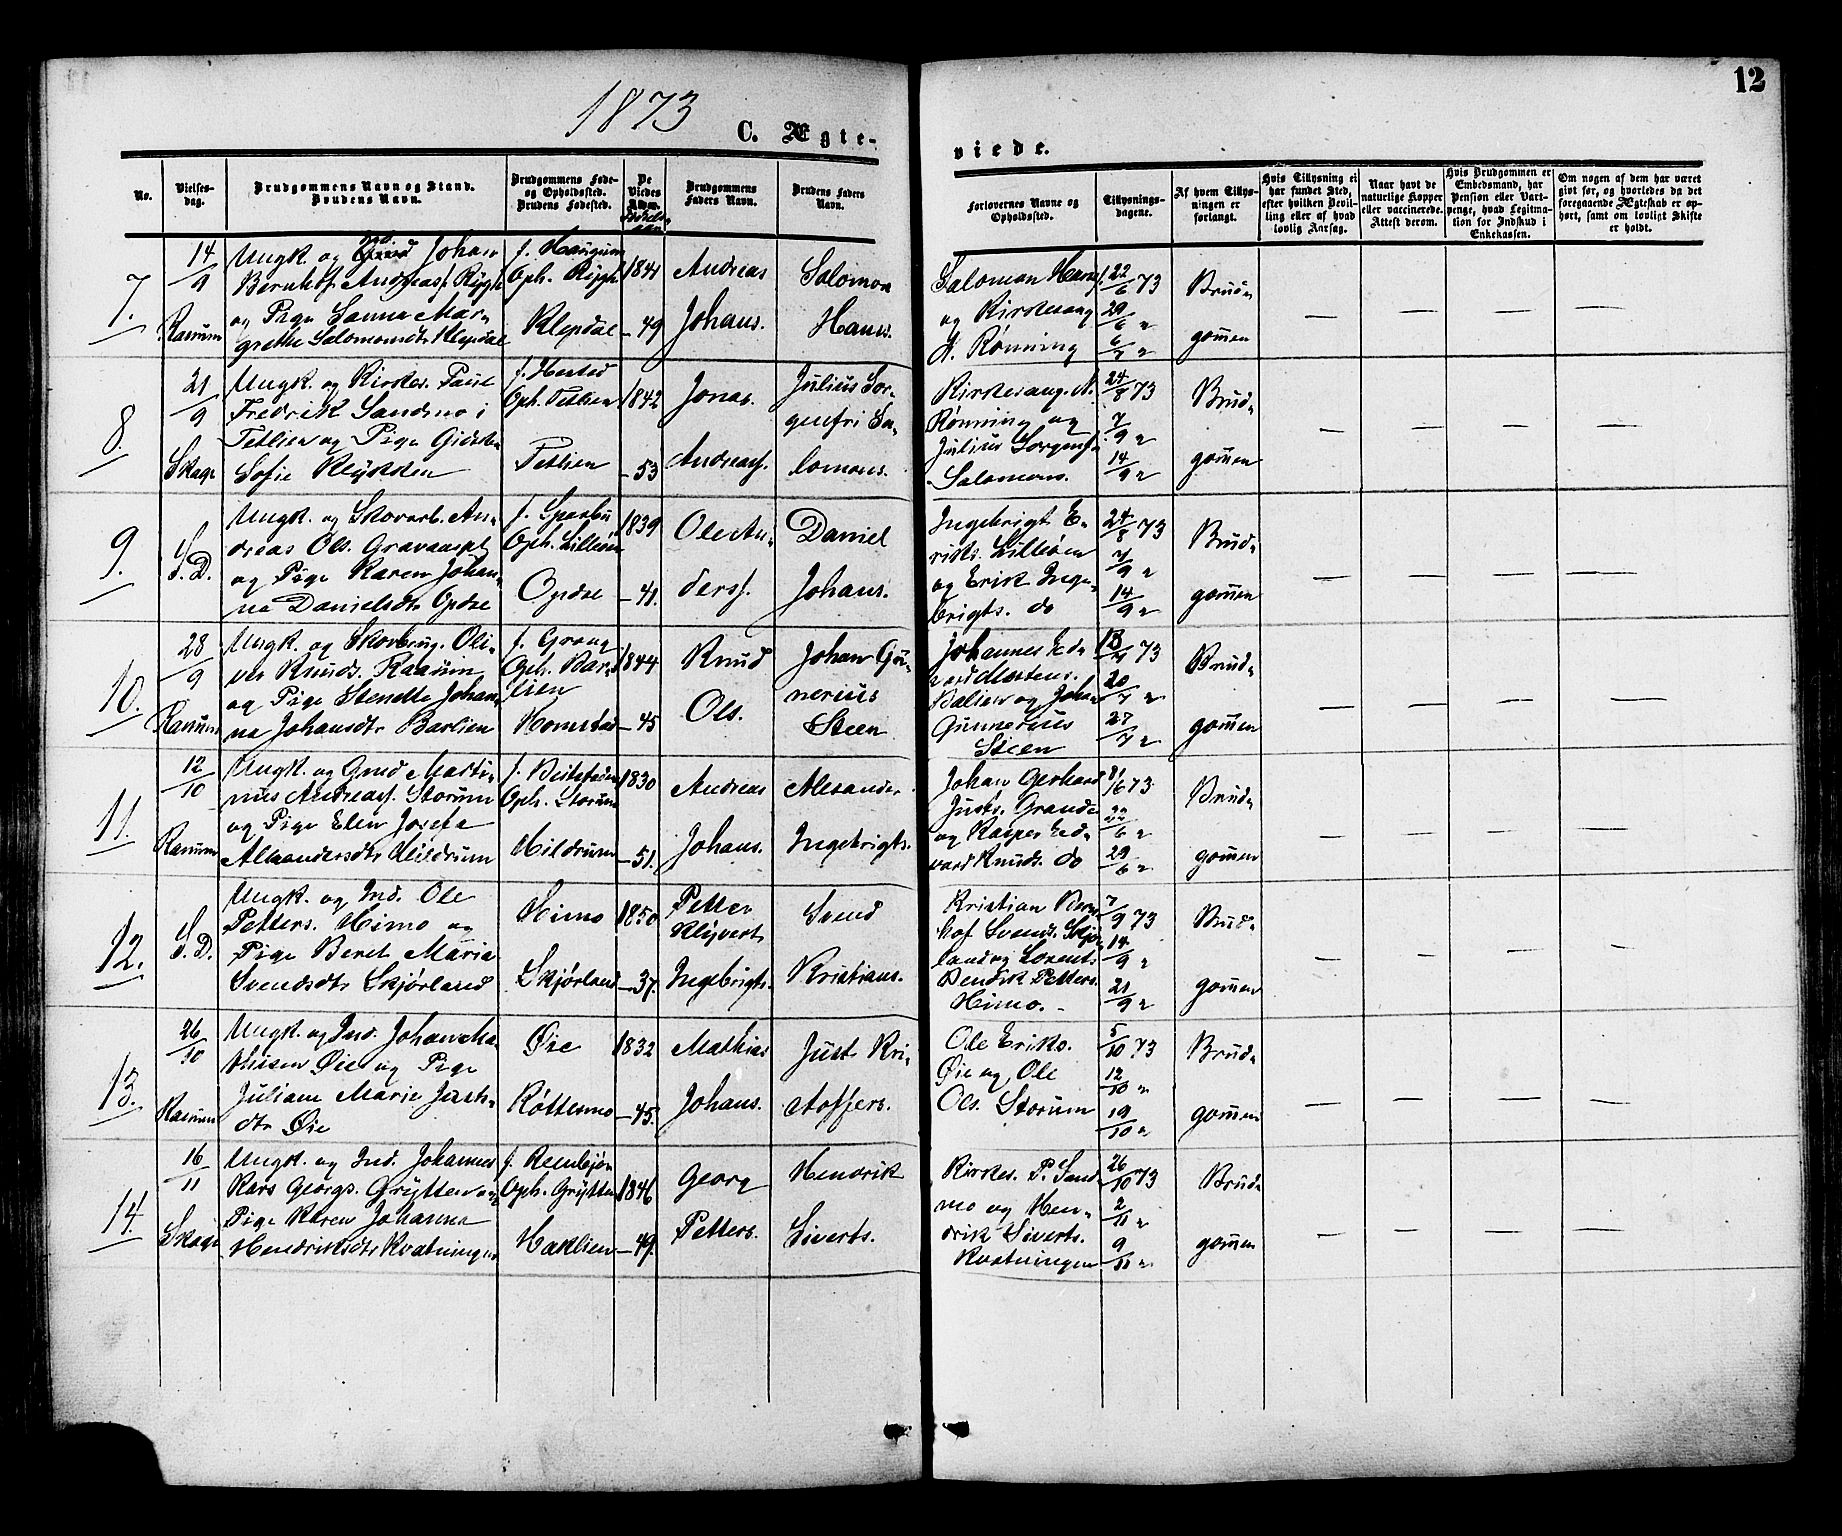 12
1873
C. Ægte-
viede.
No.
Vielses-
dag.
Brudgommens Navn og Stand.
Brudens Navn.
Brudgommens Føde-
og Opholdssted.
Brudens Fødested.
De
Viedes
Alder.
Brudgommens
Faders Navn.
Brudens Faders
Navn.
Forlovernes Navne og
Opholdssted.
Tillysnings-
dagene.
Af hvem Tillys-
ningen er
forlangt.
Hvis Tillysning ei
har fundet Sted,
efter hvilken Bevil-
ling eller af hvad
lovlig Aarsag.
Naar havt de
naturlige Kopper
eller vaccinerede.
Attest derom.
Hvis Brudgommen er
Embedsmand, har
Pension eller Vart-
penge, hvad Legitima-
tion for Indskud i
Enkekassen.
Om nogen af dem har været
givt før, og hvorledes da det
foregaaende Ægteskab er op-
hørt, samt om lovligt Skifte
er holdt.
7.
14/9
Ranum
Ungk. og Johan
Bernhof Andreass.
og Pige Sanna Mar-
grethe Salomonsdtr Klepdal
f. Haugum
Oph.
Klepdal
1841
—49
Andreas
Johans.
Salomon
Hans.
Salomon Hans.
og Kirkesang
N. Rønning
22/6 73
29/6 "
6/7 "
Brud-
gommen
— — — —
8.
21/9
Skage
Ungk. og Kirkes. Paul
Fredrik Sandmo i
Tetlien og Pige
Sofie
Oph. Tetlien
Tetlien
1842
—53
Jonas
Andreass.
Julius Sor-
genfri Sa-
lomons.
Kirkesang. N.
Rønning og
Julius Sorgenf.
Salomons.
24/8 73
7/9 "
14/9 "
Brud-
gommen
— — — —
9.
S. D.
Ungk. og Skovarb. An-
dreas Ols.
og Pige Karen Johan-
na Danielsdtr Opdal
f. Sparbu
Oph. Lilleøen
Opdal
1839
—41.
Ole An-
derss.
Daniel
Johans.
Ingebrigt E-
riks. Lilleøen
og Erik Inge-
brigts. do
24/8 73
7/9 "
14/9 "
Brud-
gommen
— — — —
10.
28/9
Ranum
Ungk. og Skovbrug. Oli-
ver Knuds. Ranum
og Pige Johan-
na Johansdtr Barlien
f. Grong
Oph. Bar-
lien
Homstad
1844
—45
Knud
Ols.
Johan Gu-
nerius
Steen
Johannes Ed-
vard Mortens.
og Johan
Gunnerius
Steen
13/7 73
20/7 "
27/7 "
Brud-
gommen
— — — —
11.
12/10
Ranum
Ungk. og Gmd Marti-
nus Andreass. Storum
og Pige Elen Josefa
Alexandersdtr Hildrum
f. Beitstaden
Oph. Storum
Hildrum
1830
—51.
Andreas
Johans.
Alexander
Ingebrigts.
Johan Gerhard
Justs. Grande
og Kasper Ed-
vard Knuds. do
73
22/6 "
29/6 "
Brud-
gommen
— — — —
12.
S. D.
Ungk. og Ind. Ole
Petters. Himo og
Pige Beret Maria
Svendsdtr Skjørland
Himo
Skjørland
1850
—37.
Petter
Klyvert
Ingebrigts.
Svend
Kristians.
Kristian Bern-
hof Svends. Skjør-
land og Lorents
Bendik Petters.
Himo.
7/9 73
14/9 "
21/9 "
Brud-
gommen
— — — —
13.
26/10
Ranum
Ungk. og Ind. Johan Ma-
thisen Øie og Pige
Juliane Marie Justs-
dtr Øie
Øie
Røttesmo
1832
—45.
Mathias
Johans.
Just Kri-
stoffers.
Ole Eriks.
Øie og Ole
Ols. Storum
5/10 73
12/10 "
19/10 "
Brud-
gommen
— — — —
14.
16/11
Skage
Ungk. og Ind. Johannes
Kars Georgs. Grytten og
Pige Karen Johanna
Hendriksdtr Kvatningen
f. Reensjøn
Oph. Grytten
Haklien
1846
—49.
Georg
Petters.
Hendrik
Siverts.
Kirkes. P. Sand-
mo og Hen-
drik Siverts.
Kvatningen
26/10 73
2/11 "
9/11 "
Brud-
gommen
— — — —